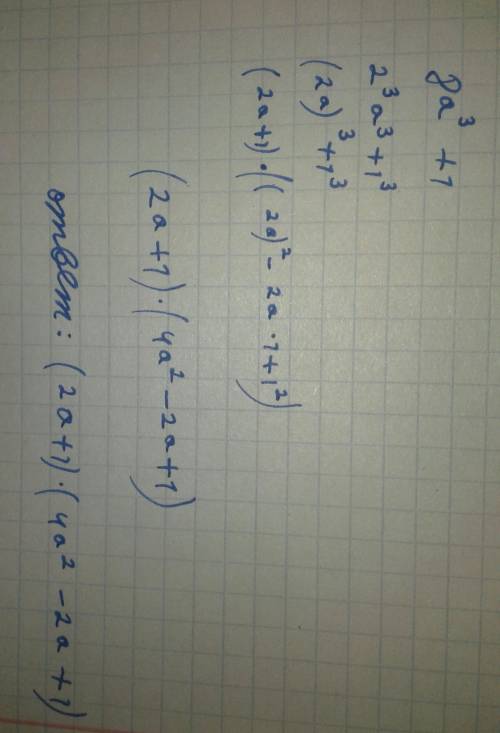 8a³ + 1
2³a³ + 1³
(2a)³ + 1³
(2a+1)·((2a)² - 2a·1+1²)
(2a+1)·(4a² - 2a+1)
ответ: (2a+1)·(4a² - 2a + 1)